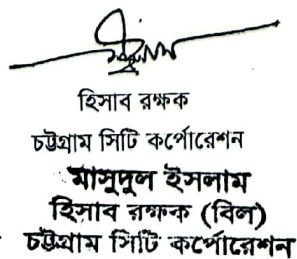 হিসাব রক্ষক
চট্টগ্রাম সিটি কর্পোরেশন
মাসুদুল ইসলাম
হিসাব রক্ষক (বিল)
চট্টগ্রাম সিটি কর্পোরেশন